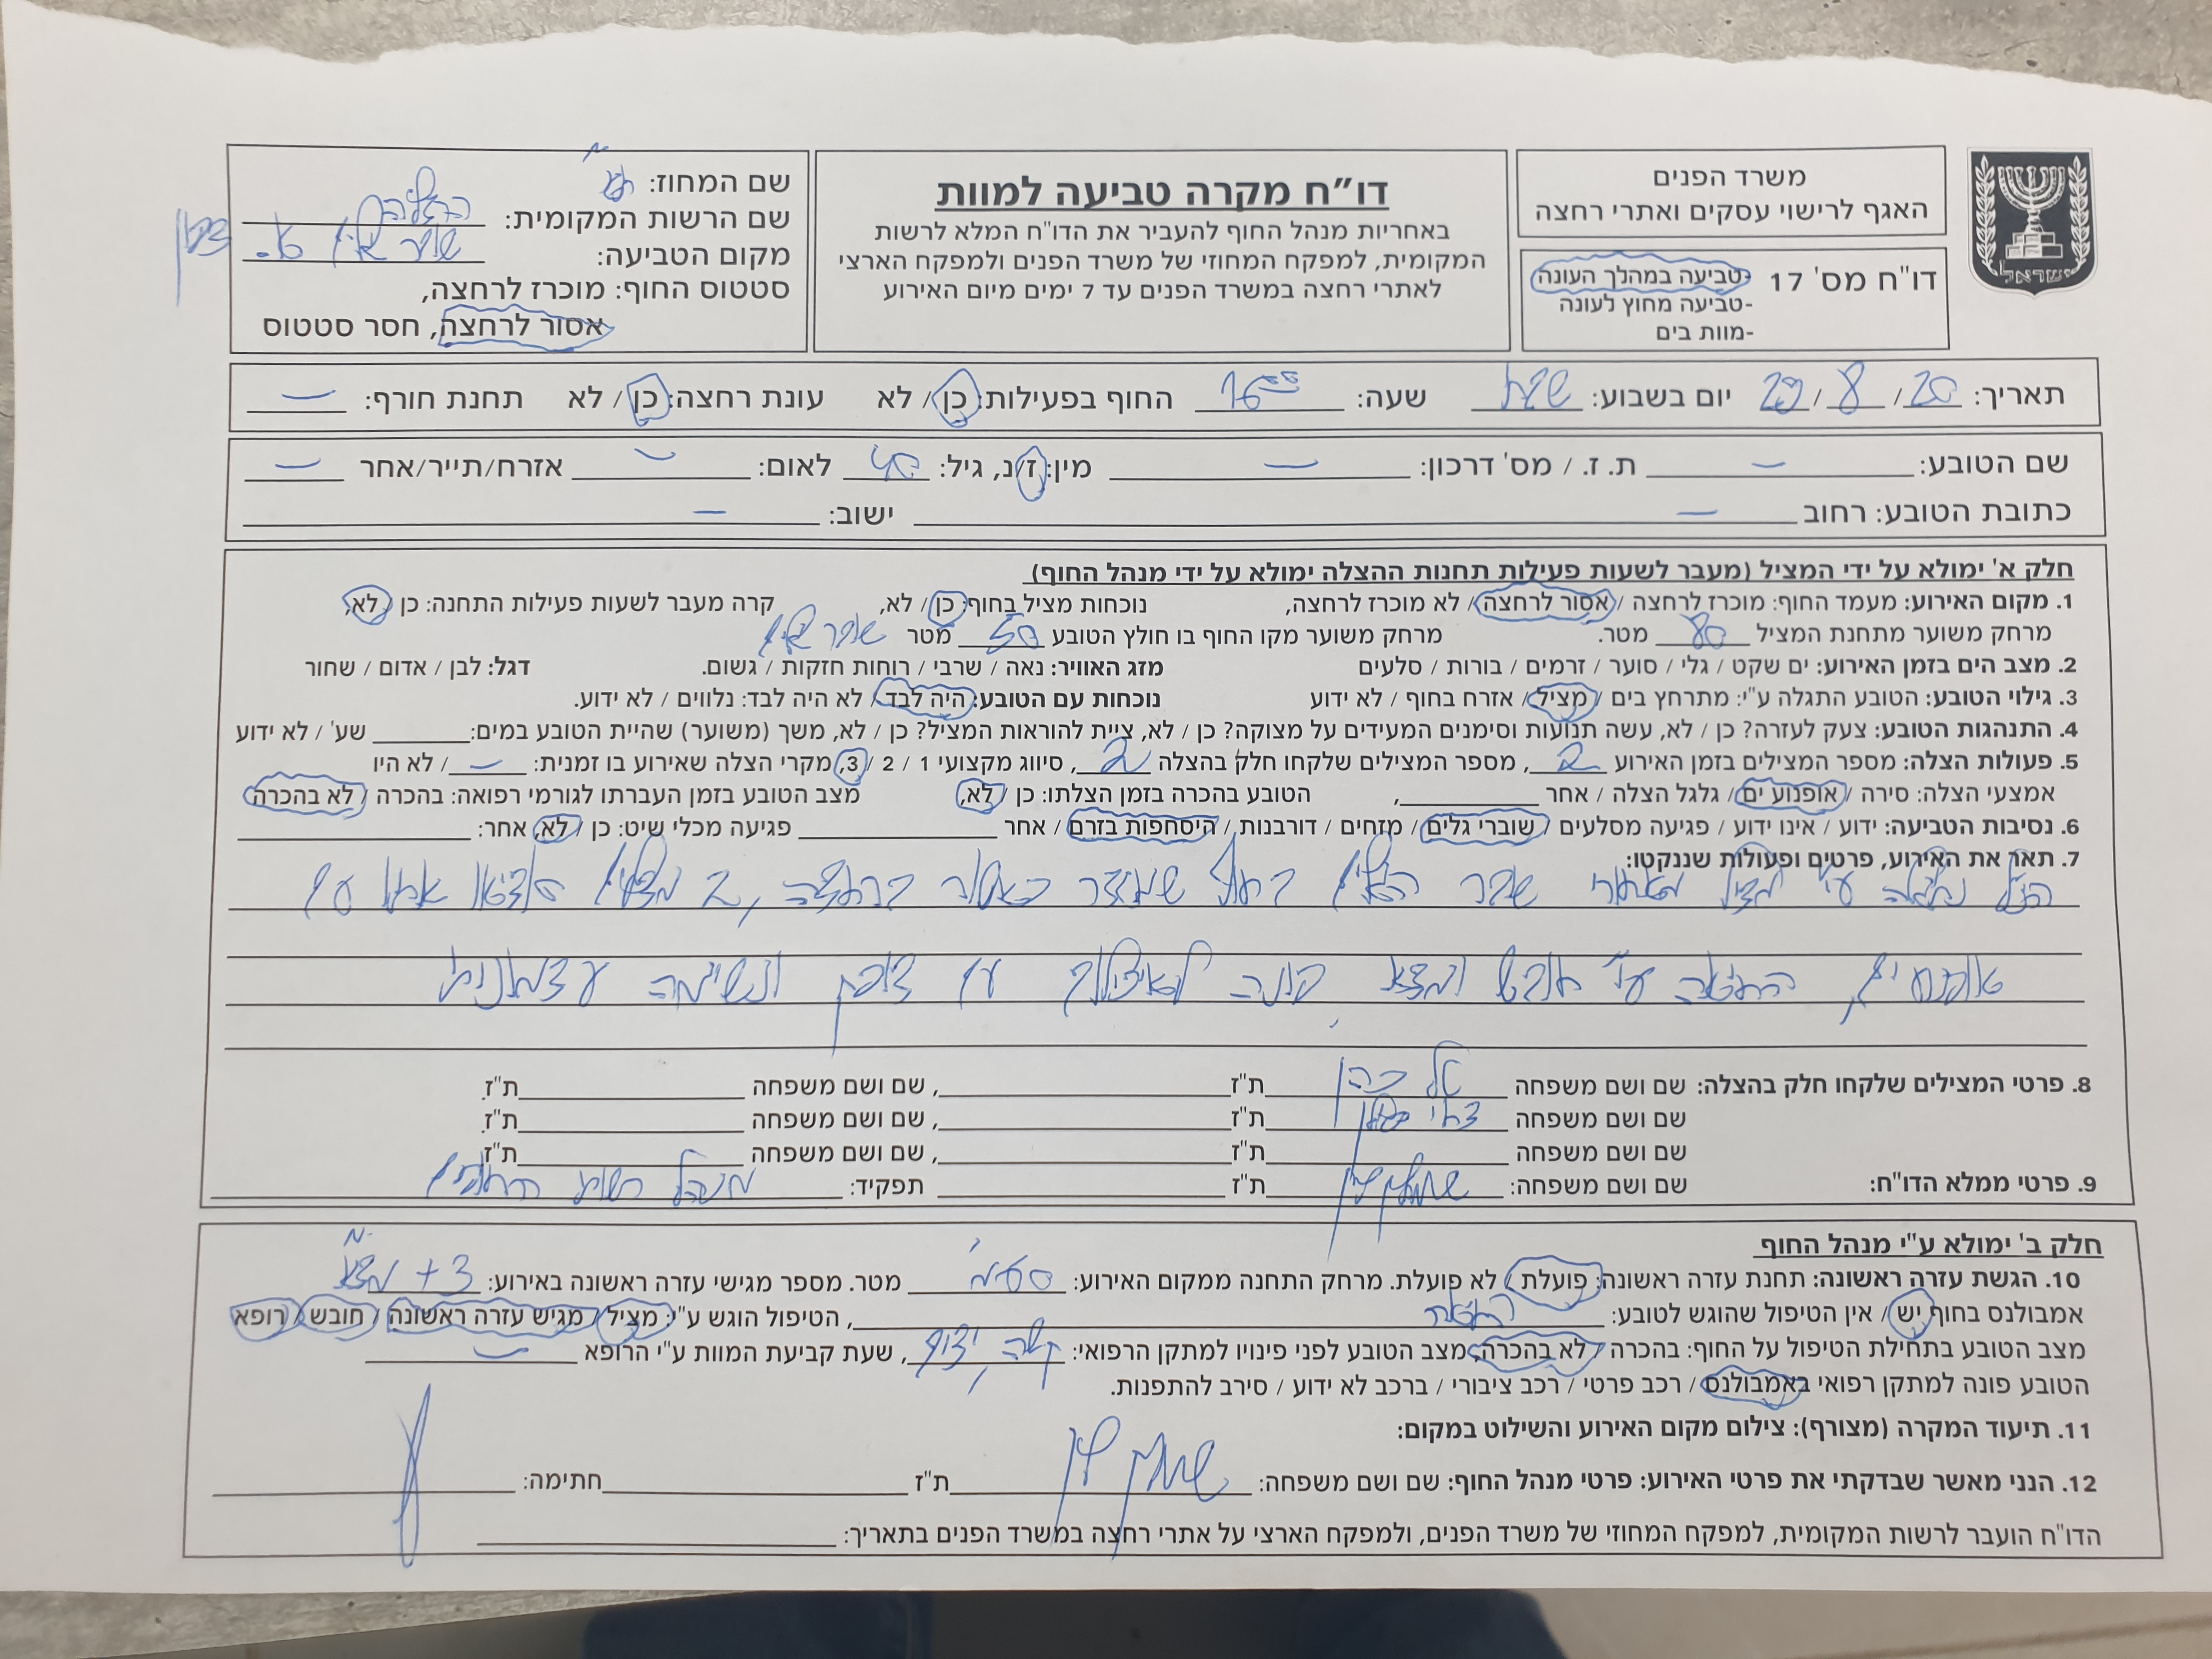 ישראל
משרד הפנים
האגף לרישוי עסקים ואתרי רחצה
דו"ח מס' 17
-טביעה במהלך העונה
-טביעה מחוץ לעונה
-מוות בים
דו"ח מקרה טביעה למוות
באחריות מנהל החוף להעביר את הדו"ח המלא לרשות
המקומית, למפקח המחוזי של משרד הפנים ולמפקח הארצי
לאתרי רחצה במשרד הפנים עד 7 ימים מיום האירוע
שם המחוז:
שם הרשות המקומית: הרצליה
מקום הטביעה: שובר גלים
סטטוס החוף: מוכרז לרחצה,
אסור לרחצה, חסר סטטוס
תאריך: 20/8/ יום בשבוע: שבת שעה: 16 החוף בפעילות: כן / לא עונת רחצה: כן / לא תחנת חורף: —
שם הטובע: — ת. ז. / מס' דרכון: — מין: ז/נ, גיל: 40 לאום: — אזרח/תייר/אחר —
כתובת הטובע: רחוב — ישוב: —
חלק א' ימולא על ידי המציל (מעבר לשעות פעילות תחנות ההצלה ימולא על ידי מנהל החוף)
1. מקום האירוע: מעמד החוף: מוכרז לרחצה / אסור לרחצה / לא מוכרז לרחצה, נוכחות מציל בחוף: כן / לא, קרה מעבר לשעות פעילות התחנה: כן / לא,
מרחק משוער מתחנת המציל 80 מטר. מרחק משוער מקו החוף בו חולץ הטובע 50 מטר שובר גלים
2. מצב הים בזמן האירוע: ים שקט / גלי / סוער / זרמים / בורות / סלעים מזג האוויר: נאה / שרבי / רוחות חזקות / גשום. דגל: לבן / אדום / שחור
3. גילוי הטובע: הטובע התגלה ע"י: מתרחץ בים / מציל / אזרח בחוף / לא ידוע נוכחות עם הטובע: היה לבד / לא היה לבד: נלווים / לא ידוע.
4. התנהגות הטובע: צעק לעזרה? כן / לא, עשה תנועות וסימנים המעידים על מצוקה? כן / לא, ציית להוראות המציל? כן / לא, משך (משוער) שהיית הטובע במים: שע' / לא ידוע
5. פעולות הצלה: מספר המצילים בזמן האירוע 2, מספר המצילים שלקחו חלק בהצלה 2, סיווג מקצועי 1 / 2 / 3, מקרי הצלה שאירוע בו זמנית: — / לא היו
אמצעי הצלה: סירה / אופנוע ים / גלגל הצלה / אחר , הטובע בהכרה בזמן הצלתו: כן / לא, מצב הטובע בזמן העברתו לגורמי רפואה: בהכרה / לא בהכרה
6. נסיבות הטביעה: ידוע / אינו ידוע / פגיעה מסלעים / שוברי גלים / מזחים / דורבנות / היסחפות בזרם / אחר פגיעה מכלי שיט: כן / לא, אחר:
7. תאר את האירוע, פרטים ופעולות שננקטו:
הנ"ל נתגלה ע"י מציל מאחורי שובר הגלים בחוף שמוגדר כאסור ברחצה, 2 מצילים הוציאו אותו עם
אופנוע ים, החייאה ע"י חובש ומד"א פונה לאיכילוב עם דופק ונשימה עצמונית
8. פרטי המצילים שלקחו חלק בהצלה: שם ושם משפחה טל כהן ת"ז , שם ושם משפחה ת"ז
שם ושם משפחה ת"ז , שם ושם משפחה ת"ז
שם ושם משפחה ת"ז , שם ושם משפחה ת"ז
9. פרטי ממלא הדו"ח: שם ושם משפחה: ת"ז תפקיד: מנהל רשות החופים
חלק ב' ימולא ע"י מנהל החוף
10. הגשת עזרה ראשונה: תחנת עזרה ראשונה: פועלת / לא פועלת. מרחק התחנה ממקום האירוע: מטר. מספר מגישי עזרה ראשונה באירוע: 3 + מד"א
אמבולנס בחוף יש / אין הטיפול שהוגש לטובע: החייאה , הטיפול הוגש ע"י: מציל / מגיש עזרה ראשונה / חובש / רופא
מצב הטובע בתחילת הטיפול על החוף: בהכרה / לא בהכרה, מצב הטובע לפני פינויו למתקן הרפואי: קשה, יציב , שעת קביעת המוות ע"י הרופא —
הטובע פונה למתקן רפואי באמבולנס / רכב פרטי / רכב ציבורי / ברכב לא ידוע / סירב להתפנות.
11. תיעוד המקרה (מצורף): צילום מקום האירוע והשילוט במקום:
12. הנני מאשר שבדקתי את פרטי האירוע: פרטי מנהל החוף: שם ושם משפחה: ת"ז חתימה:
הדו"ח הועבר לרשות המקומית, למפקח המחוזי של משרד הפנים, ולמפקח הארצי על אתרי רחצה במשרד הפנים בתאריך: